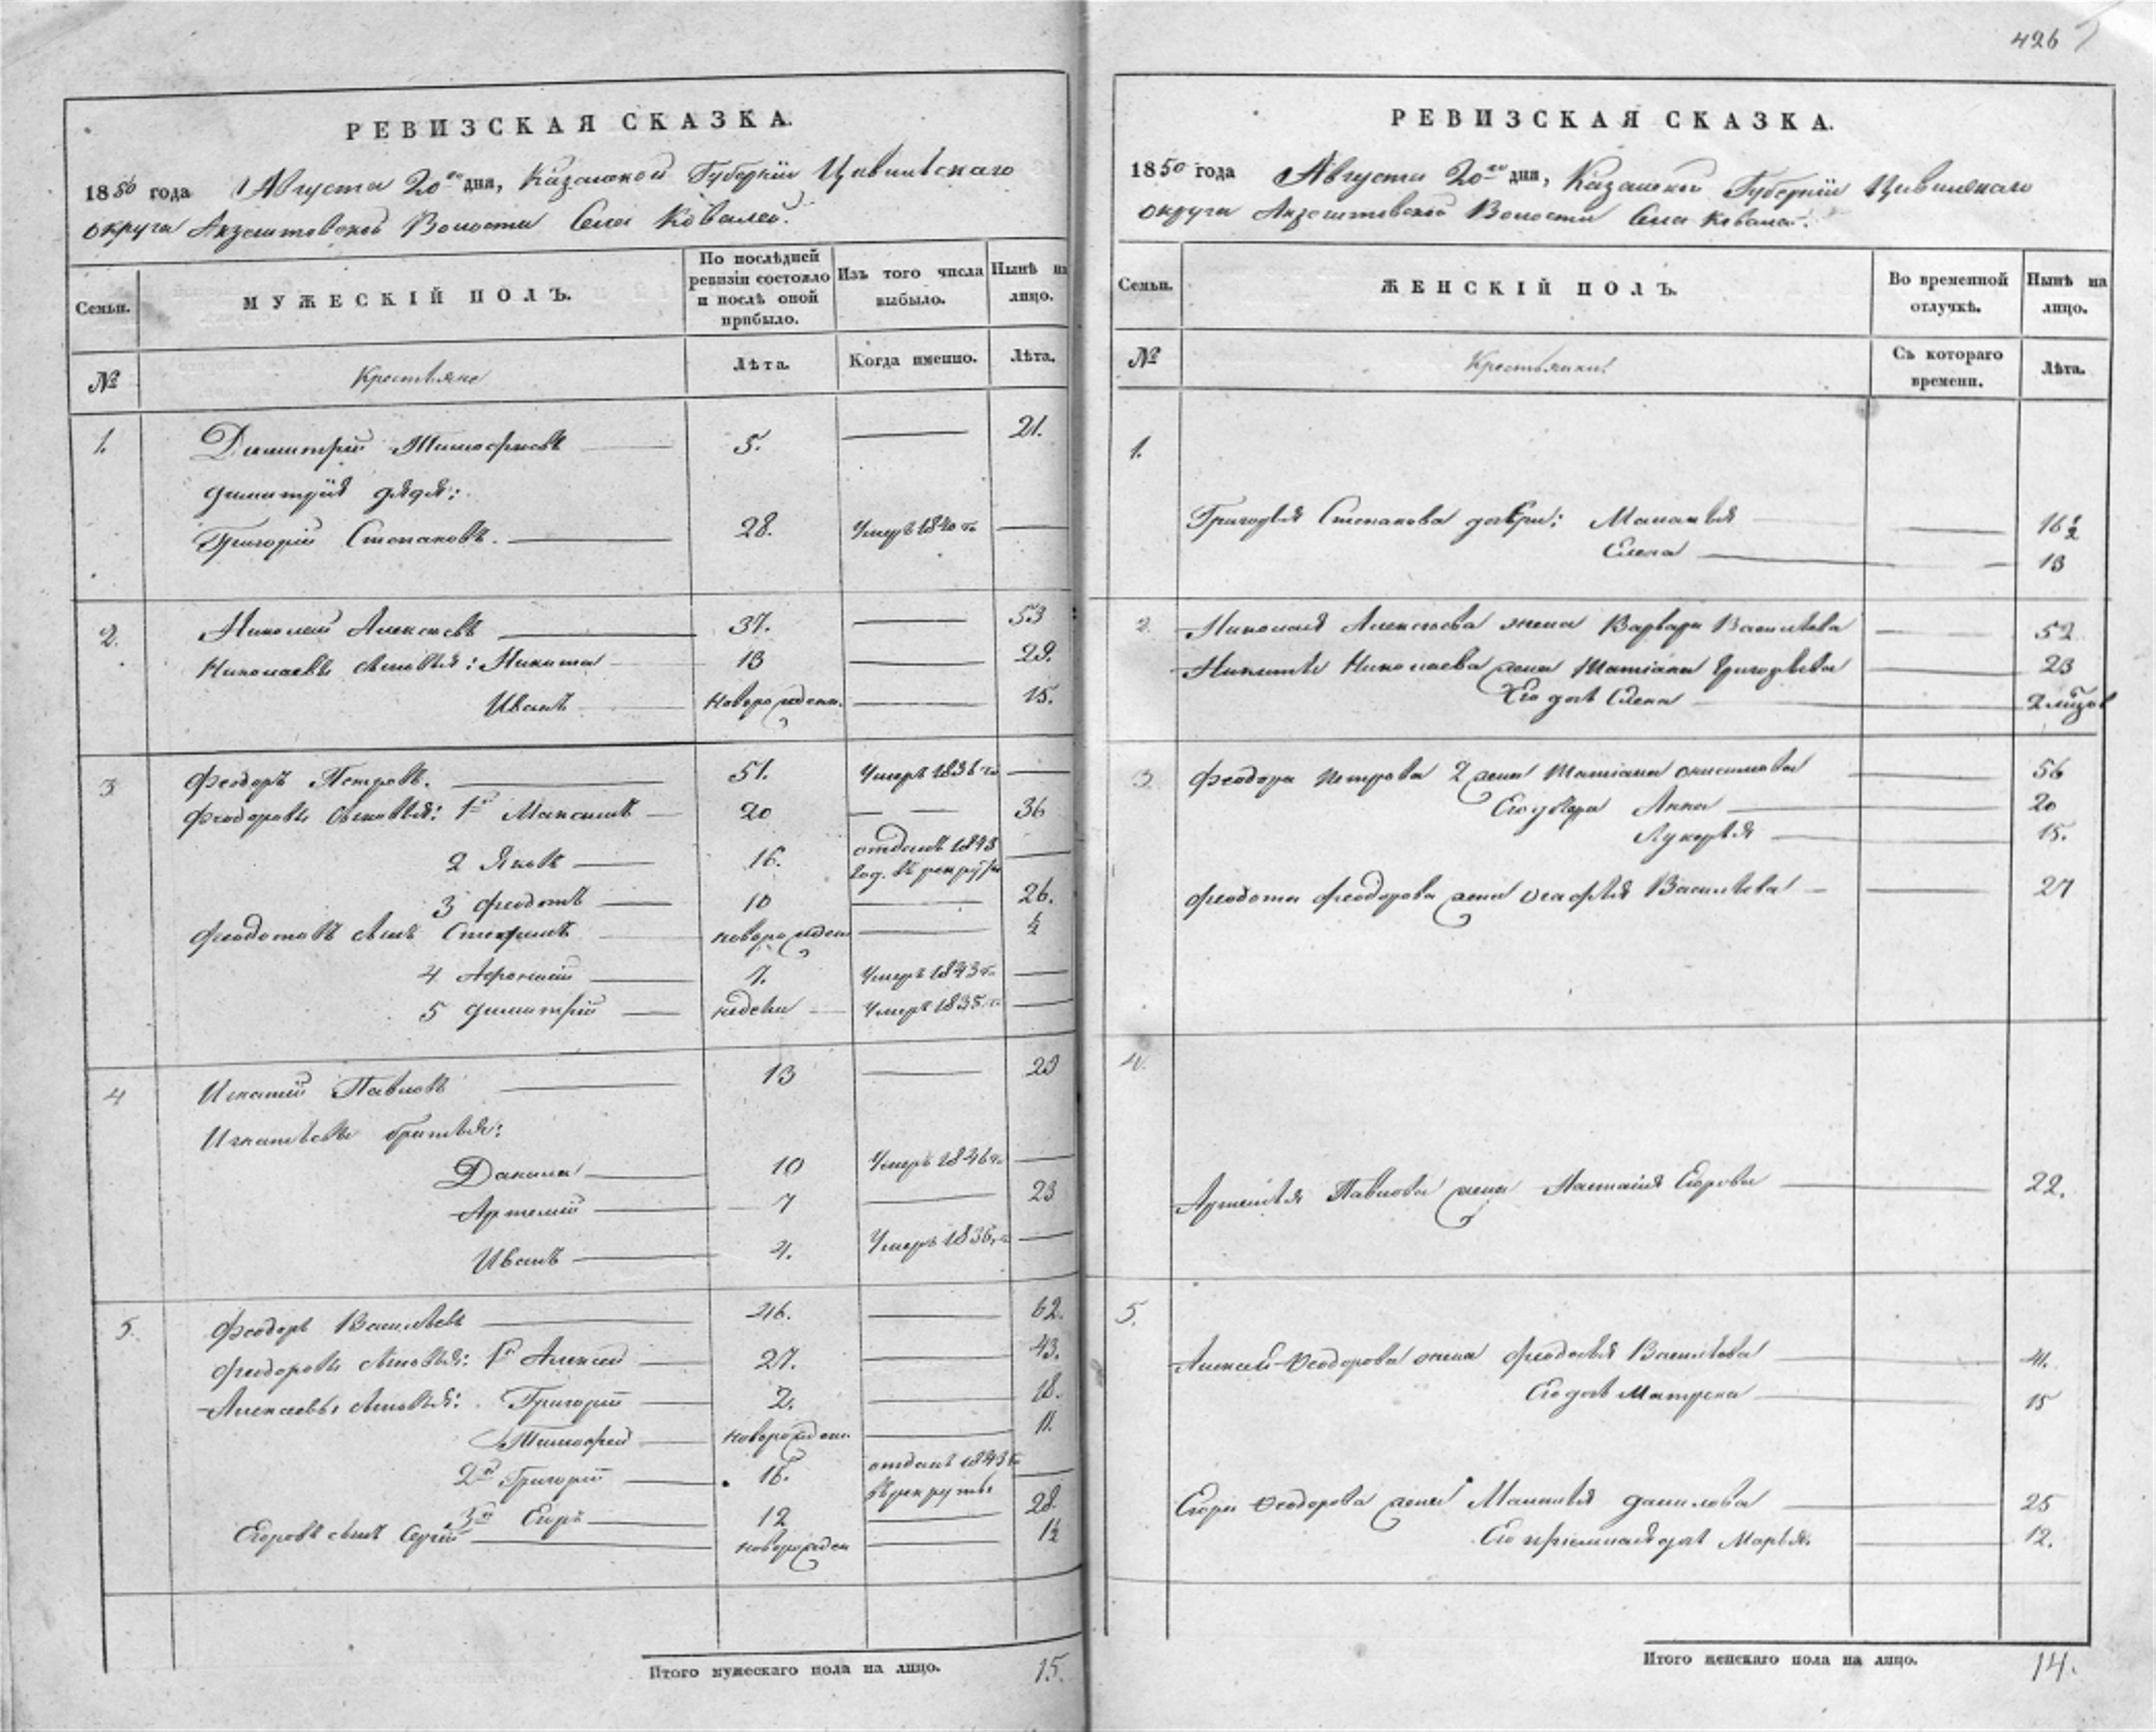 РЕВИЗСКАЯ СКАЗКА.
1850 года Августа 20го дня, Казанской Губерніи Цивильскаго
округа Акзегитовской Волости Села Ковалей.
Семьи.
МУЖЕСКІЙ ПОЛЪ.
По послѣдней ревизіи состояло и послѣ оной прибыло.
Изъ того числа выбыло.
Нынѣ на лицо.
№
Крестьяне
Лѣта.
Когда именно.
Лѣта.
1. Димитрій Тимофѣевъ 5. 21.
Димитрія дядя:
Григорій Степановъ. 28. Умеръ 1840 г.
2. Николай Алексѣевъ 37. 53
Николаевы сыновья: Никита 13 29.
Иванъ новорожденн. 15.
3 Феодоръ Петровъ. 51. Умеръ 1836 г.
Феодоровы сыновья: 1й Максимъ 20 36
2 Яковъ 16. отданъ 1843 год. въ рекруты
3 Феодотъ 10 26.
Феодотовъ сынъ новорожден ½
4 7. Умеръ 1843 г.
5 Димитрій недели Умеръ 1835 г.
4 Игнатій Павловъ 13 29
Игнатьевы братья:
Данила 10 Умеръ 1836 г.
Артемій 7 23
Иванъ 4. Умеръ 1836 г.
5. Феодоръ Васильевъ 46. 62.
Феодоровы сыновья: 1й Алексей 27. 43.
Алексеевы сыновья: Григорій 2. 18.
Тимофей новорожден. 11.
2й Григорій 16. отданъ 1843 г. въ рекруты
3й Егоръ 12 28.
Егоровъ сынъ Сергій новорожден 1½
Итого мужескаго пола на лицо. 15.
426
РЕВИЗСКАЯ СКАЗКА.
1850 года Августа 20го дня, Казанской Губерніи Цивильскаго
округа Акзегитовской Волости Села Ковалей.
Семьи.
ЖЕНСКІЙ ПОЛЪ.
Во временной отлучкѣ.
Нынѣ на лицо.
№
Крестьянки
Съ котораго времени.
Лѣта.
1.
Григорья Степанова дочери: Маланья 16½
Елена 13
2. Николая Алексѣева жена Варвара Васильева 52
Никиты Николаева жена Татіана Григорьева 23
Его дочь Елена
3. Феодора Петрова 2 жена Татіана 56
Его дочери Анна 20
Лукерья 15.
Феодота Феодорова жена Агафья Васильева 27
4.
Артемья Павлова жена Настасія Егорова 22.
5.
Алексея Феодорова жена Феодосья Васильева 41.
Его дочь Матрена 15
Егора Феодорова жена Маланья Данилова 25
Его пріемная дочь Марья. 12.
Итого женскаго пола на лицо. 14.